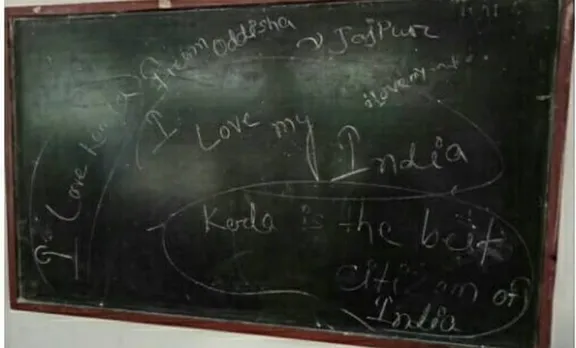 From Oddisha
JajPur
I Love
I Love my India
Kerla is the best
citizen of
India